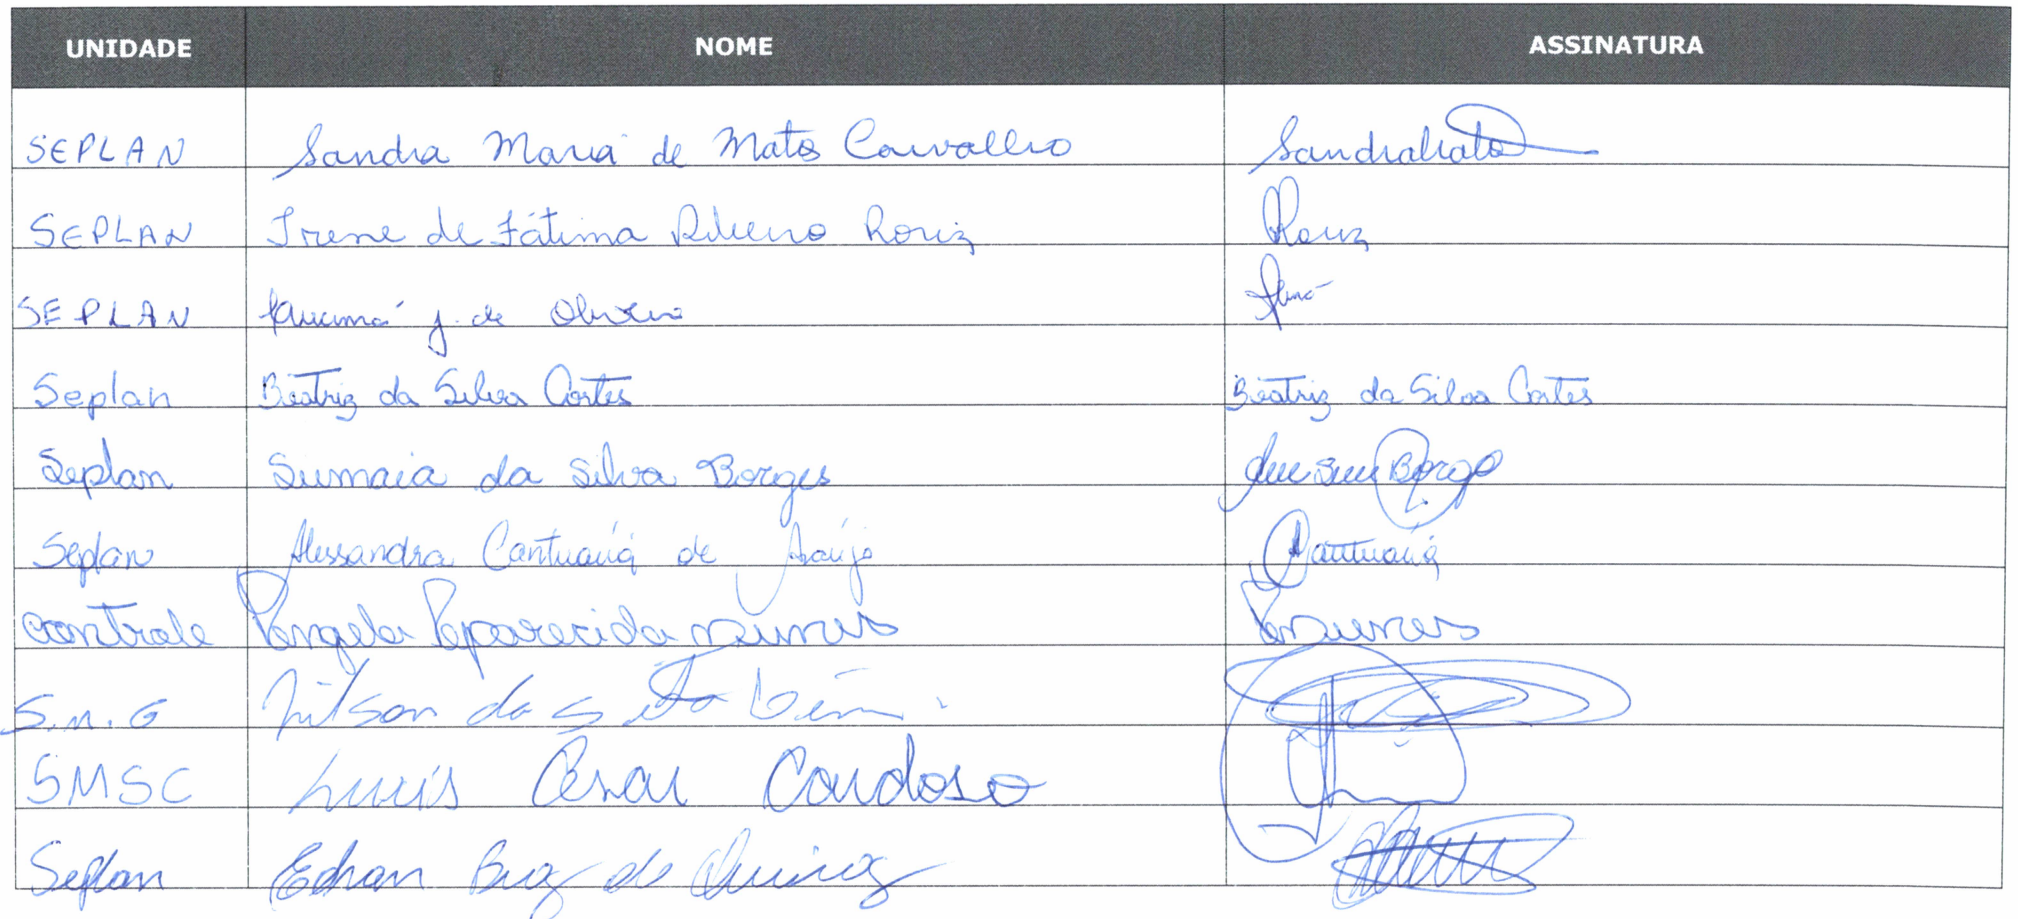 UNIDADE NOME ASSINATURA
SEPLAN Sandra Maria de Matos Carvalho
SEPLAN Irene de Fátima Ribeiro Roriz Roriz
SEPLAN J. de Oliveira
Seplan Beatriz da Silva Cortes Beatriz da Silva Cortes
Seplan Sumaia da Silva Borges Borges
Seplan Alessandra Cantuariá de Araújo Cantuariá
Controle Angela Aparecida Nunes Nunes
S.M.G Nilson da
SMSC Luis Cesar Cardoso
Seplan Braz de Queiroz